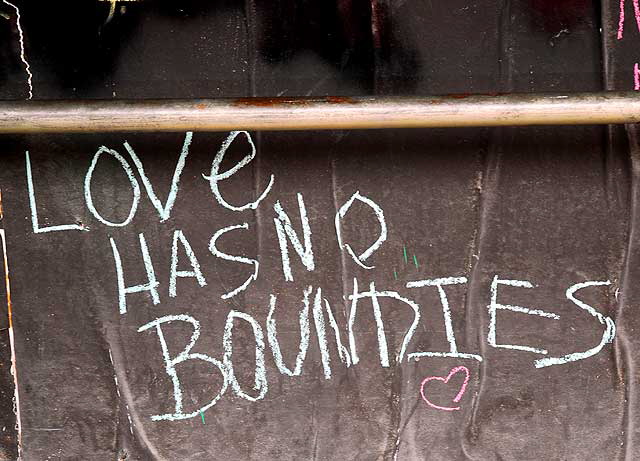 LOVe
HAS NO
BOUNDIES